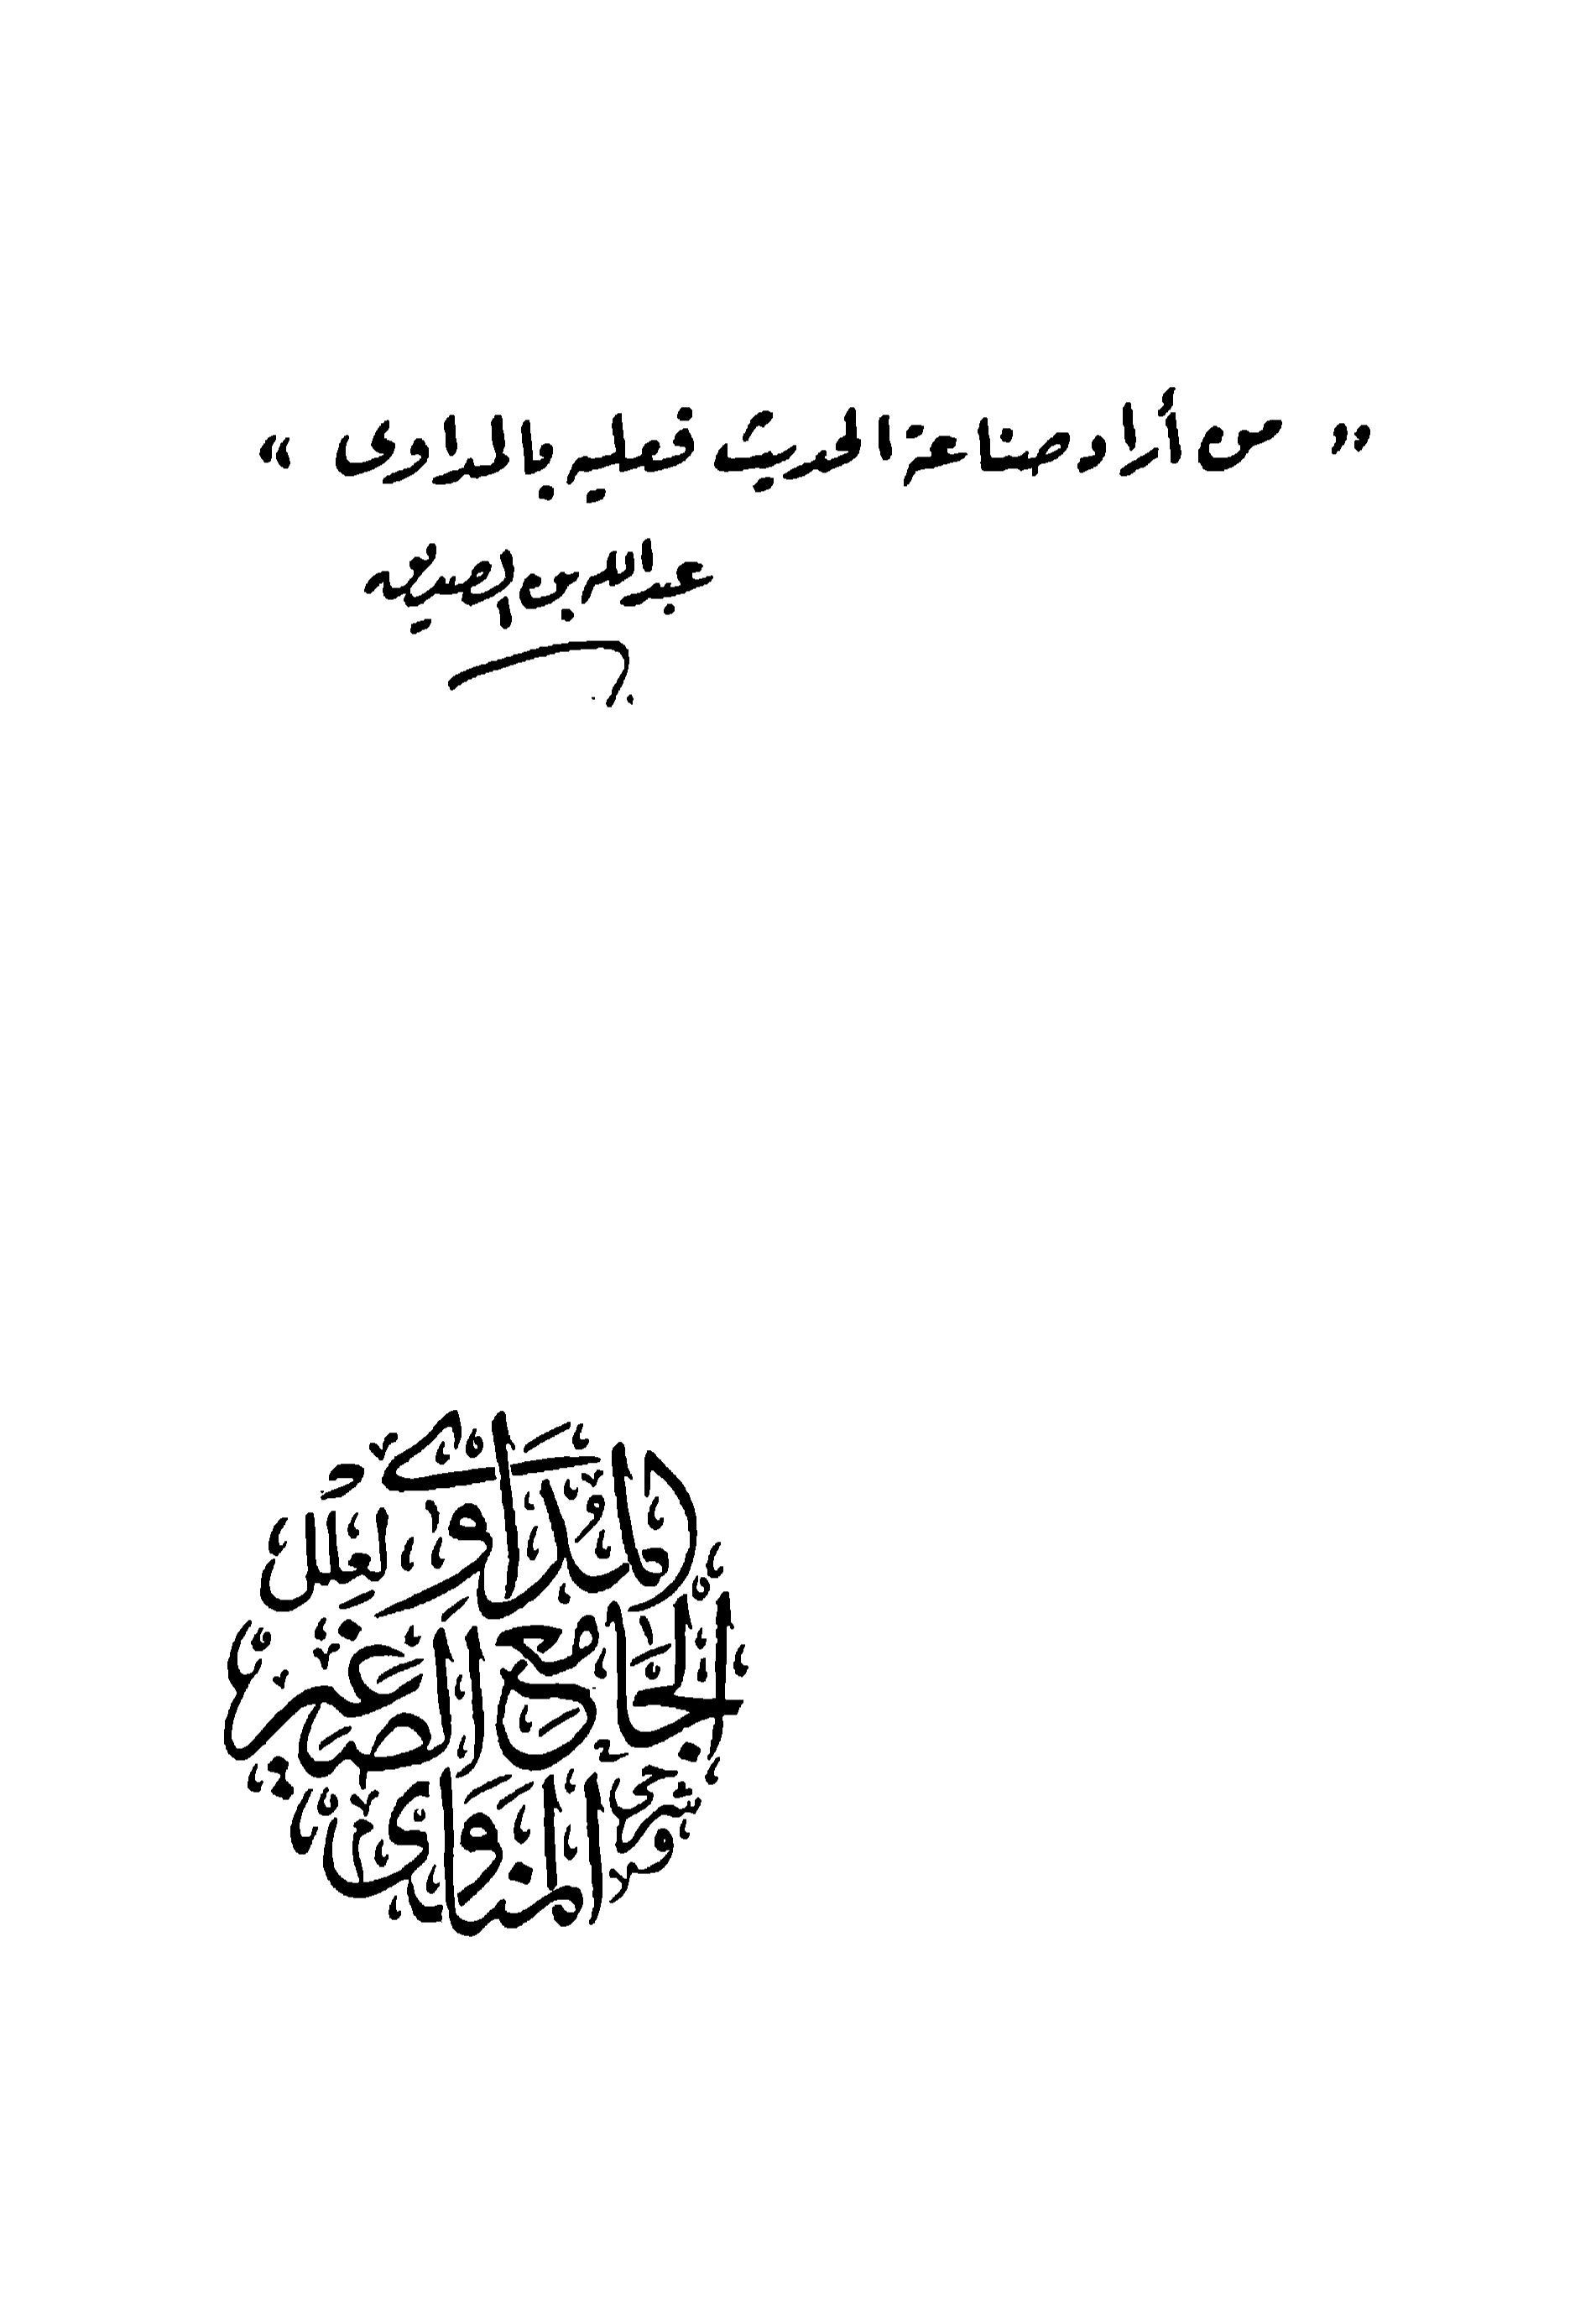 « من أراد صناعة الحديث فعليه بالمداوى »
عبد الله بن الصديق
المداوى لعلل
الجامع الصغير
وشرحى المناوى